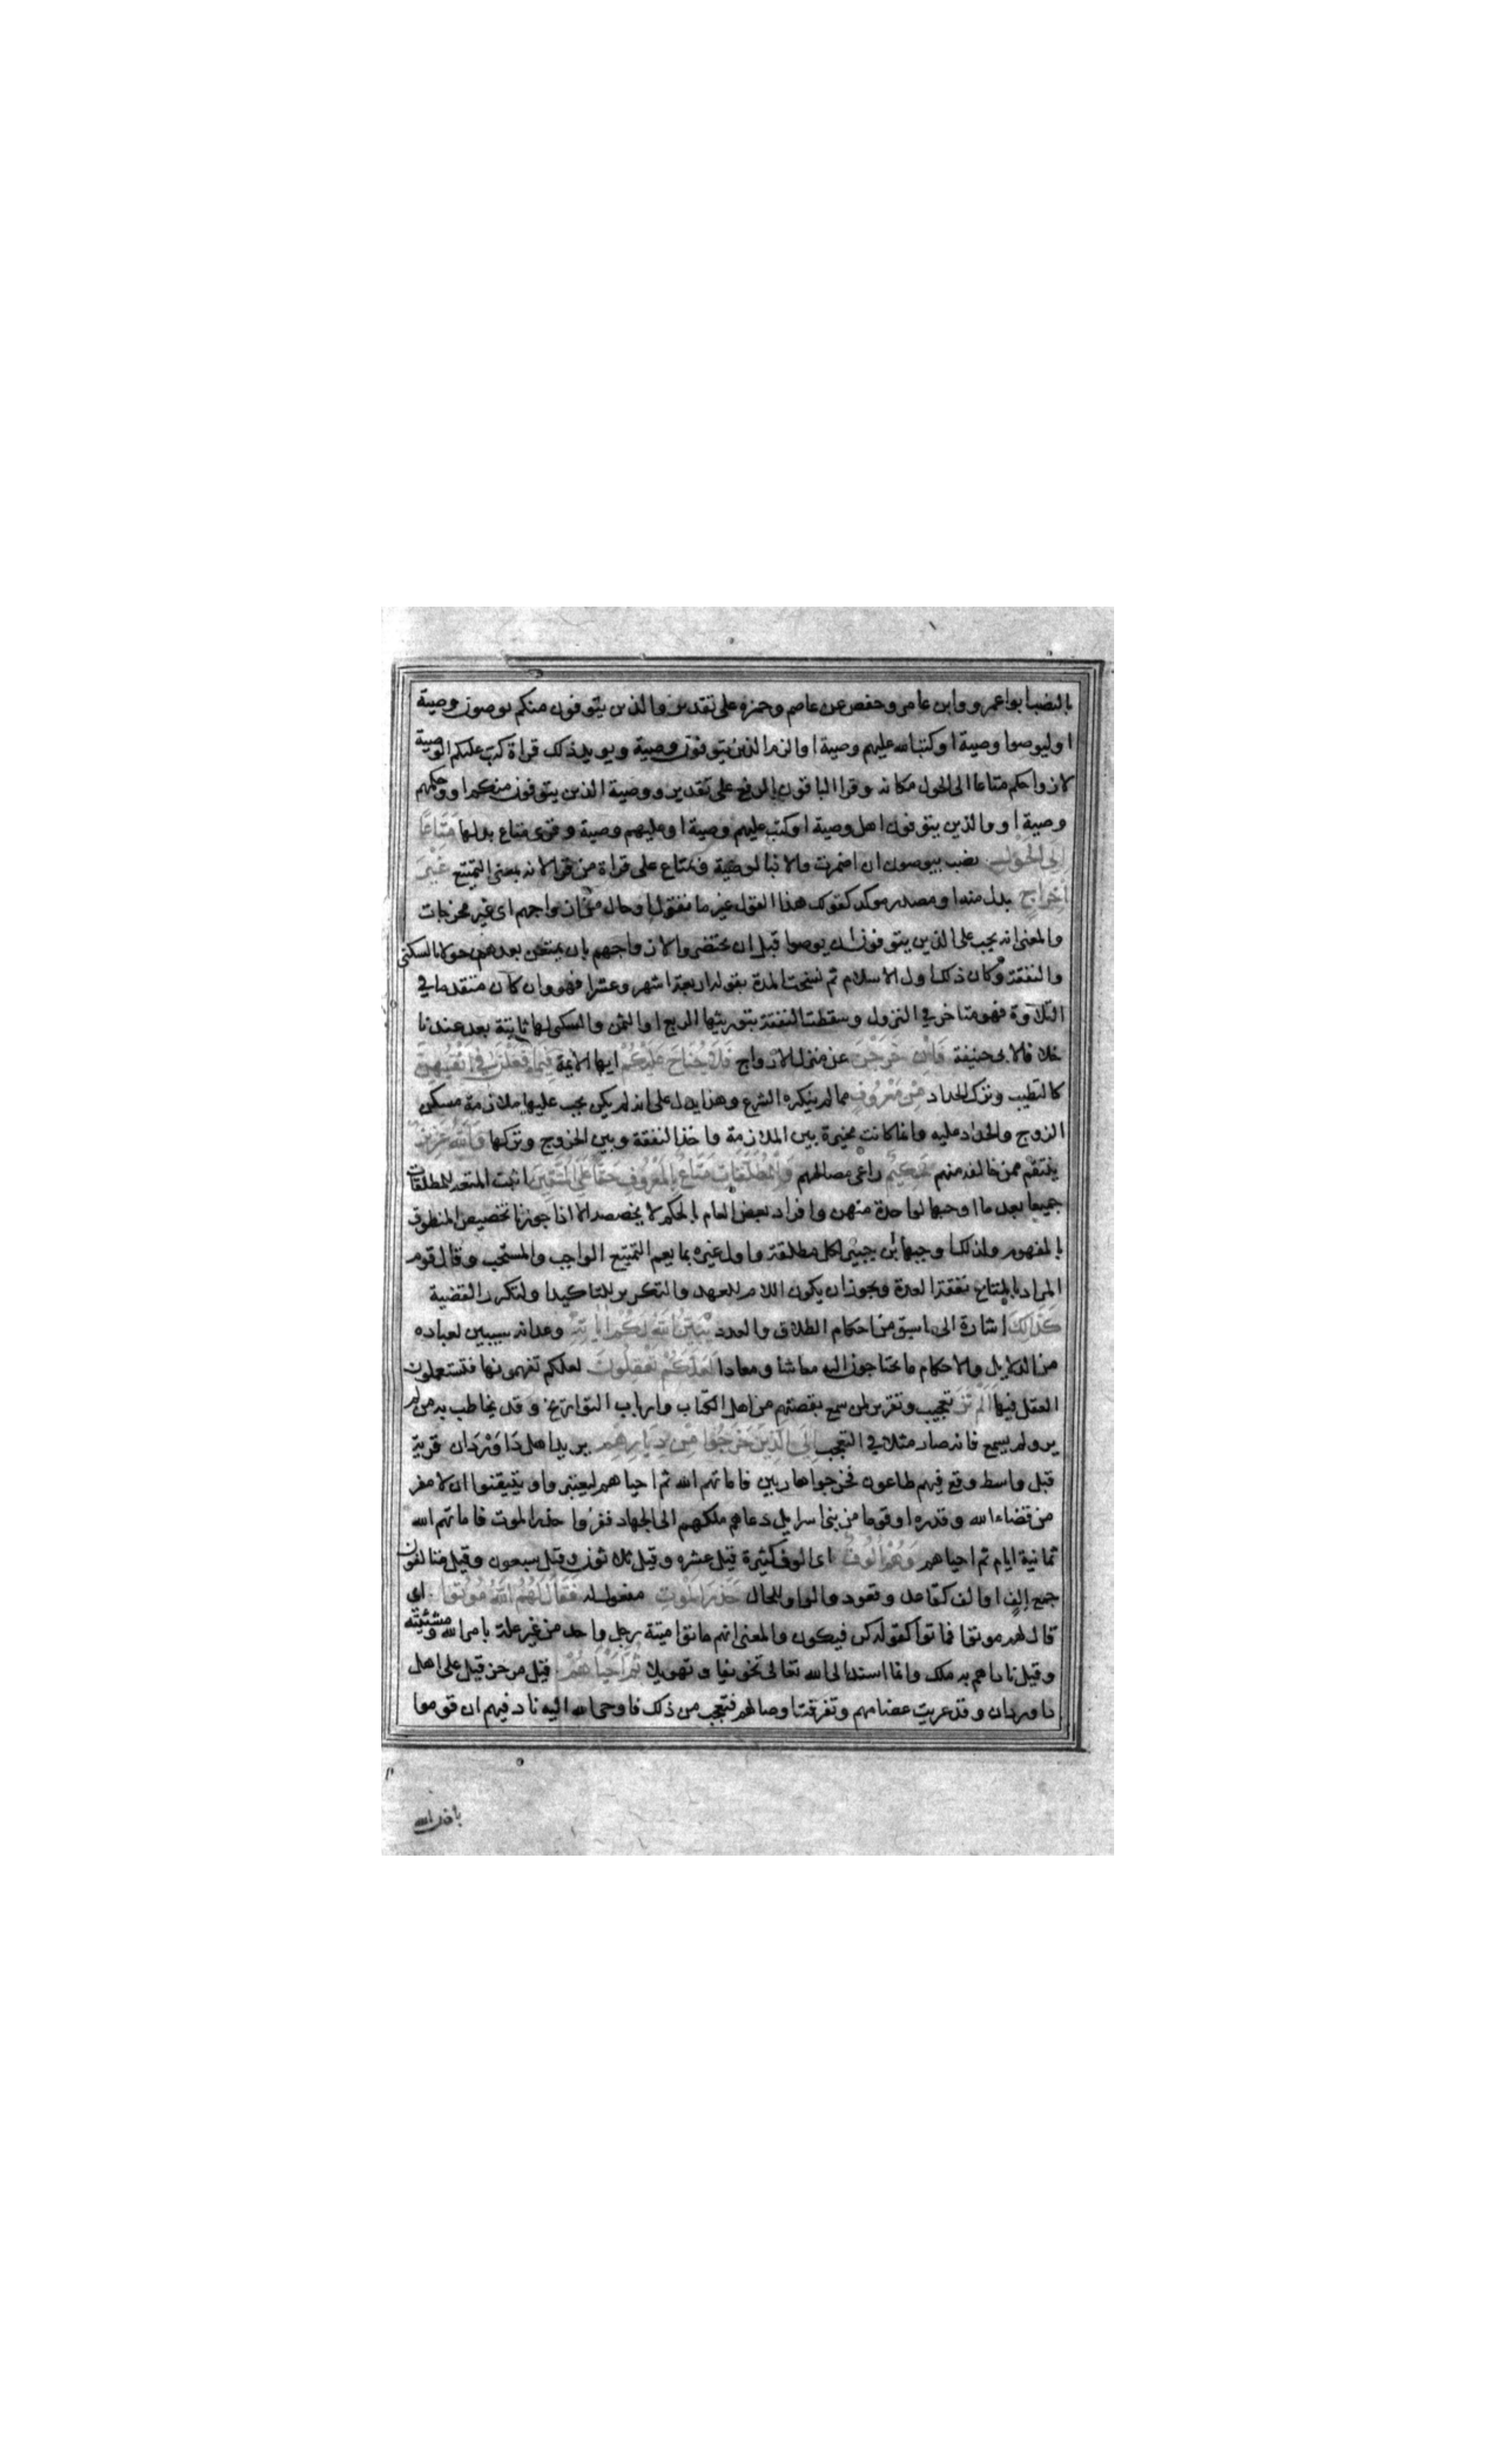 بالنصب ابو عمرو وابن عامر وحفص عن عاصم وحمزه على تقدير والذين يتوفون منكم يوصون وصية
اوليوصوا وصية او كتب الله عليهم وصية او الزم الذين يتوفون وصية ويويد ذلك قراة كتب عليكم الوصية
لازواجكم متاعا الى الحول مكانه وقرا الباقون بالرفع على تقدير ووصية الذين يتوفون منكم او وحكمهم
وصية او والذين يتوفون اهل وصية او كتب عليهم وصية او عليهم وصية وقرى متاع بدلها مَتَاعًا
اِلَى الْحَوْلِ نصب بيوصون ان اضمرت والا فبالوصية وبمتاع على قراة من قرا لانه بمعنى التمتيع غَيْرَ
اِخْرَاجٍ بدل منه او مصدر موكد كقولك هذا القول غير ما تقول او حال من ازواجهم اى غير مخرجات
والمعنى انه يجب على الذين يتوفون ان يوصوا قبل ان يحتضروا لازواجهم بان يمتعن بعدهم حولا بالسكنى
والنفقة وكان ذلك اول الاسلام ثم نسخت المدة بقوله اربعة اشهر وعشرا فهو وان كان متقدما في
التلاوة فهو متاخر في النزول وسقطت النفقة بتوريثها الربع او الثمن والسكنى لها ثابتة بعد عندنا
خلافا لابى حنيفة فَاِنْ خَرَجْنَ عن منزل الازواج فَلَا جُنَاحَ عَلَيْكُمْ ايها الايمة فِيمَا فَعَلْنَ فِي اَنْفُسِهِنَّ
كالتطيب وترك الحداد مِنْ مَعْرُوفٍ مما لم ينكره الشرع وهذا يدل على انه لم يكن يجب عليها ملازمة مسكن
الزوج والحداد عليه وانما كانت مخيرة بين الملازمة واخذ النفقة وبين الخروج وتركها وَاللّٰهُ عَزِيزٌ
ينتقم ممن خالفه منهم حَكِيمٌ راعى مصالحهم وَلِلْمُطَلَّقَاتِ مَتَاعٌ بِالْمَعْرُوفِ حَقًّا عَلَى الْمُتَّقِينَ اثبت المتعة للمطلقات
جميعا بعد ما اوجبها لواحدة منهن وافراد بعض العام بالحكم لا يخصصه الا اذا جوزنا تخصيص المنطوق
بالمفهوم ولذلك اوجبها ابن جبير لكل مطلقة واول غيره بما يعم التمتيع الواجب والمستحب وقال قوم
المراد بالمتاع نفقة العدة ويجوز ان يكون اللام للعهد والتكرير للتاكيد او لتكرر القضية
كَذَالِكَ اشارة الى ما سبق من احكام الطلاق والعدد يُبَيِّنُ اللّٰهُ لَكُمْ اٰيَاتِهِ وعد انه سيبين لعباده
من الدلايل والاحكام ما يحتاجون اليه معاشا ومعادا لَعَلَّكُمْ تَعْقِلُونَ لعلكم تفهمونها فتستعملون
العقل فيها اَلَمْ تَرَ تعجيب وتقرير لمن سمع بقصتهم من اهل الكتاب وارباب التواريخ وقد يخاطب به من لم
ير ولم يسمع فانه صار مثلا في التعجب اِلَى الَّذِينَ خَرَجُوا مِنْ دِيَارِهِمْ يريد اهل دَاوَرْدَان قرية
قبل واسط وقع فيهم طاعون فخرجوا هاربين فاماتهم الله ثم احياهم ليعتبروا ويتيقنوا ان لا مفر
من قضاء الله وقدره او قوما من بنى اسرايل دعاهم ملكهم الى الجهاد ففروا حذر الموت فاماتهم الله
ثمانية ايام ثم احياهم وَهُمْ اُلُوفٌ اى الوف كثيرة قيل عشره وقيل ثلاثون وقيل سبعون وقيل متالفون
جمع اِلفٍ او الف كقاعد وقعود والواو للحال حَذَرَ الْمَوْتِ مفعول له فَقَالَ لَهُمُ اللّٰهُ مُوتُوا اى
قال لهم موتوا فماتوا كقوله كن فيكون والمعنى انهم ماتوا ميتة رجل واحد من غير علة بامر الله ومشيئته
وقيل ناداهم به ملك وانما اسند الى الله تعالى تخويفا وتهويلا ثُمَّ اَحْيَاهُمْ قيل مر حزقيل على اهل
داوردان وقد عريت عضامهم وتفرقت اوصالهم فتعجب من ذلك فاوحى الله اليه ناد فيهم ان قوموا
باذن الله